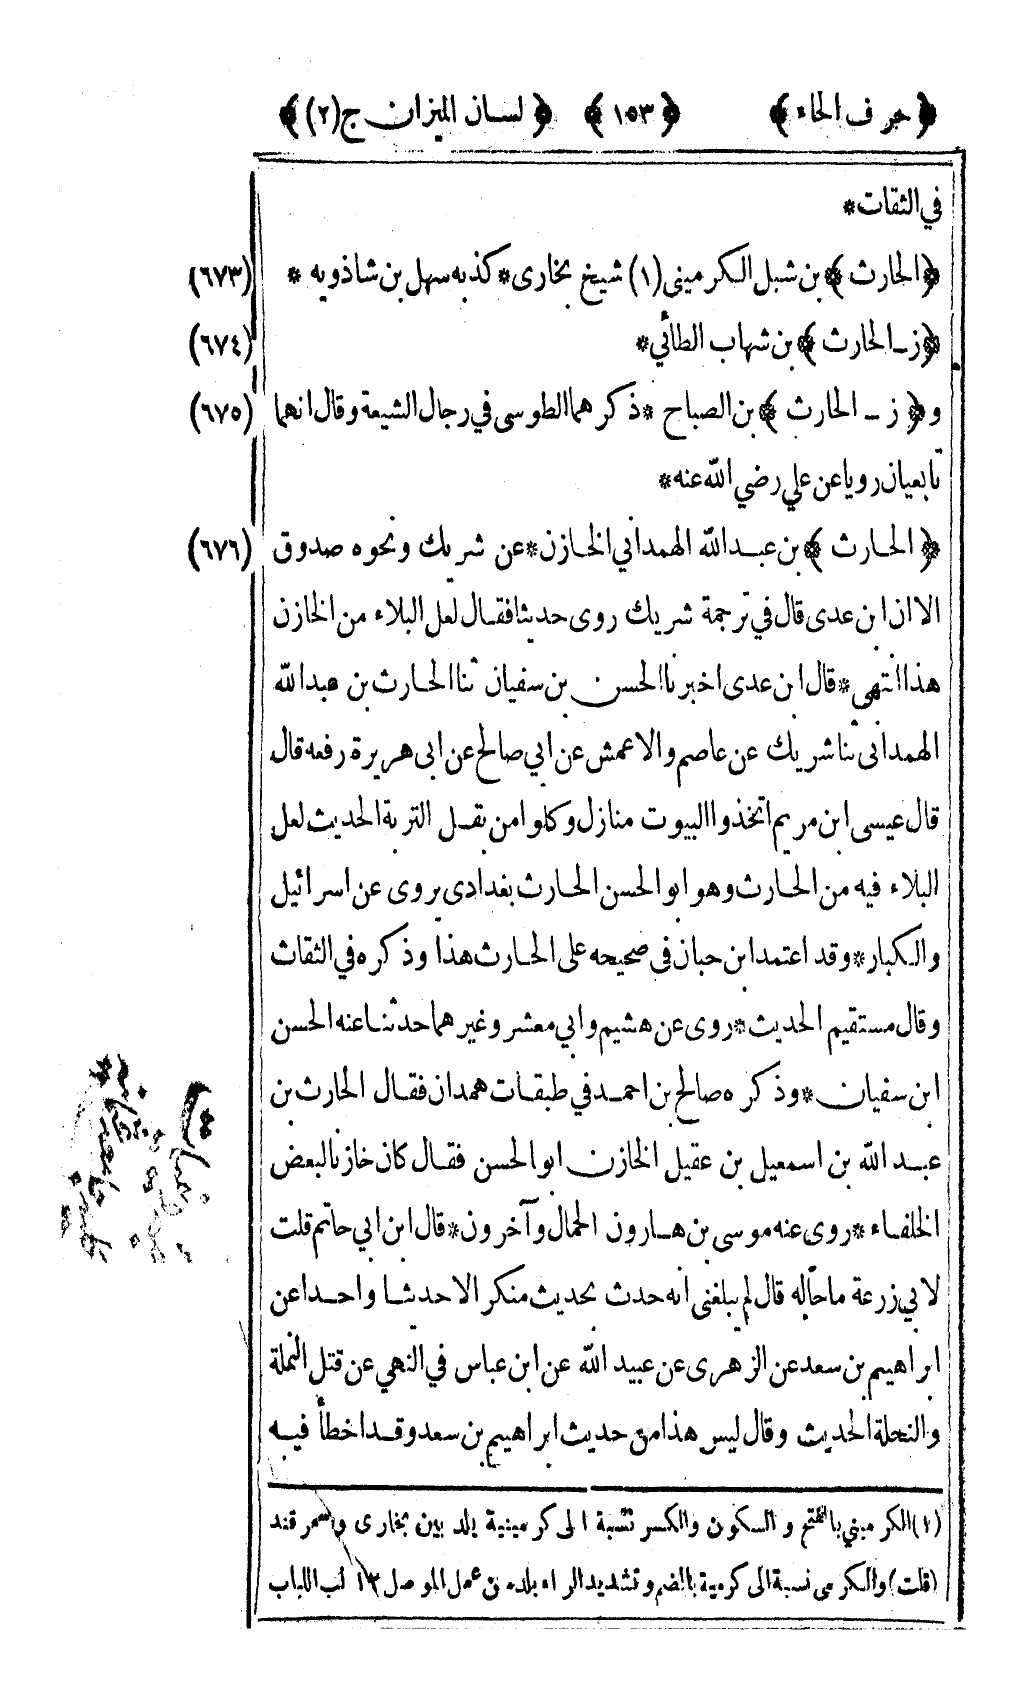 ﴿حرف الحاء﴾ ﴿١٥٣﴾ ﴿لسان الميزان ج(٢)﴾
في الثقات*
﴿الحارث﴾ بن شبل الكرميني (١) شيخ بخارى* كذبه سهل بن شاذويه * (٦٧٣)
﴿ز-الحارث﴾ بن شهاب الطائي* (٦٧٤)
و﴿ز - الحارث﴾ بن الصباح *ذكرهما الطوسى في رجال الشيعة وقال انهما (٦٧٥)
تابعيان رويا عن علي رضي الله عنه*
﴿الحارث﴾ بن عبد الله الهمداني الخازن*عن شريك ونحوه صدوق (٦٧٦)
الا ان ابن عدى قال في ترجمة شريك روى حديثا فقال لعل البلاء من الخازن
هذا انتهى*قال ابن عدى اخبرنا الحسن بن سفيان ثنا الحارث بن عبد الله
الهمدانى ثنا شريك عن عاصم والاعمش عن ابي صالح عن ابى هريرة رفعه قال
قال عيسى ابن مريم اتخذوا البيوت منازل وكلوا من بقل التربة الحديث لعل
البلاء فيه من الحارث وهو ابو الحسن الحارث بغدادى يروى عن اسرائيل
والكبار*وقد اعتمد ابن حبان فى صحيحه على الحارث هذا وذكره في الثقات
وقال مستقيم الحديث*روى عن هشيم وابي معشر وغيرهما حدثنا عنه الحسن
ابن سفيان*وذكره صالح بن احمد في طبقات همدان فقال الحارث بن
عبد الله بن اسمعيل بن عقيل الخازن ابو الحسن فقال كان خازنا لبعض
الخلفاء*روى عنه موسى بن هارون الحمال وآخرون*قال ابن ابي حاتم قلت
لابي زرعة ما حاله قال لم يبلغنى انه حدث بحديث منكر الا حديثا واحدا عن
ابراهيم بن سعد عن الزهرى عن عبيد الله عن ابن عباس في النهي عن قتل النملة
والنحلة الحديث وقال ليس هذا من حديث ابراهيم بن سعد وقد اخطأ فيه
(١) الكرميني بالفتح والسكون والكسر نسبة الى كرمينية بلد بين بخارى وسمرقند
(قلت) والكرمى نسبة الى كرمية بالضم وتشديد الراء بلدة من عمل الموصل ١٣ لب اللباب